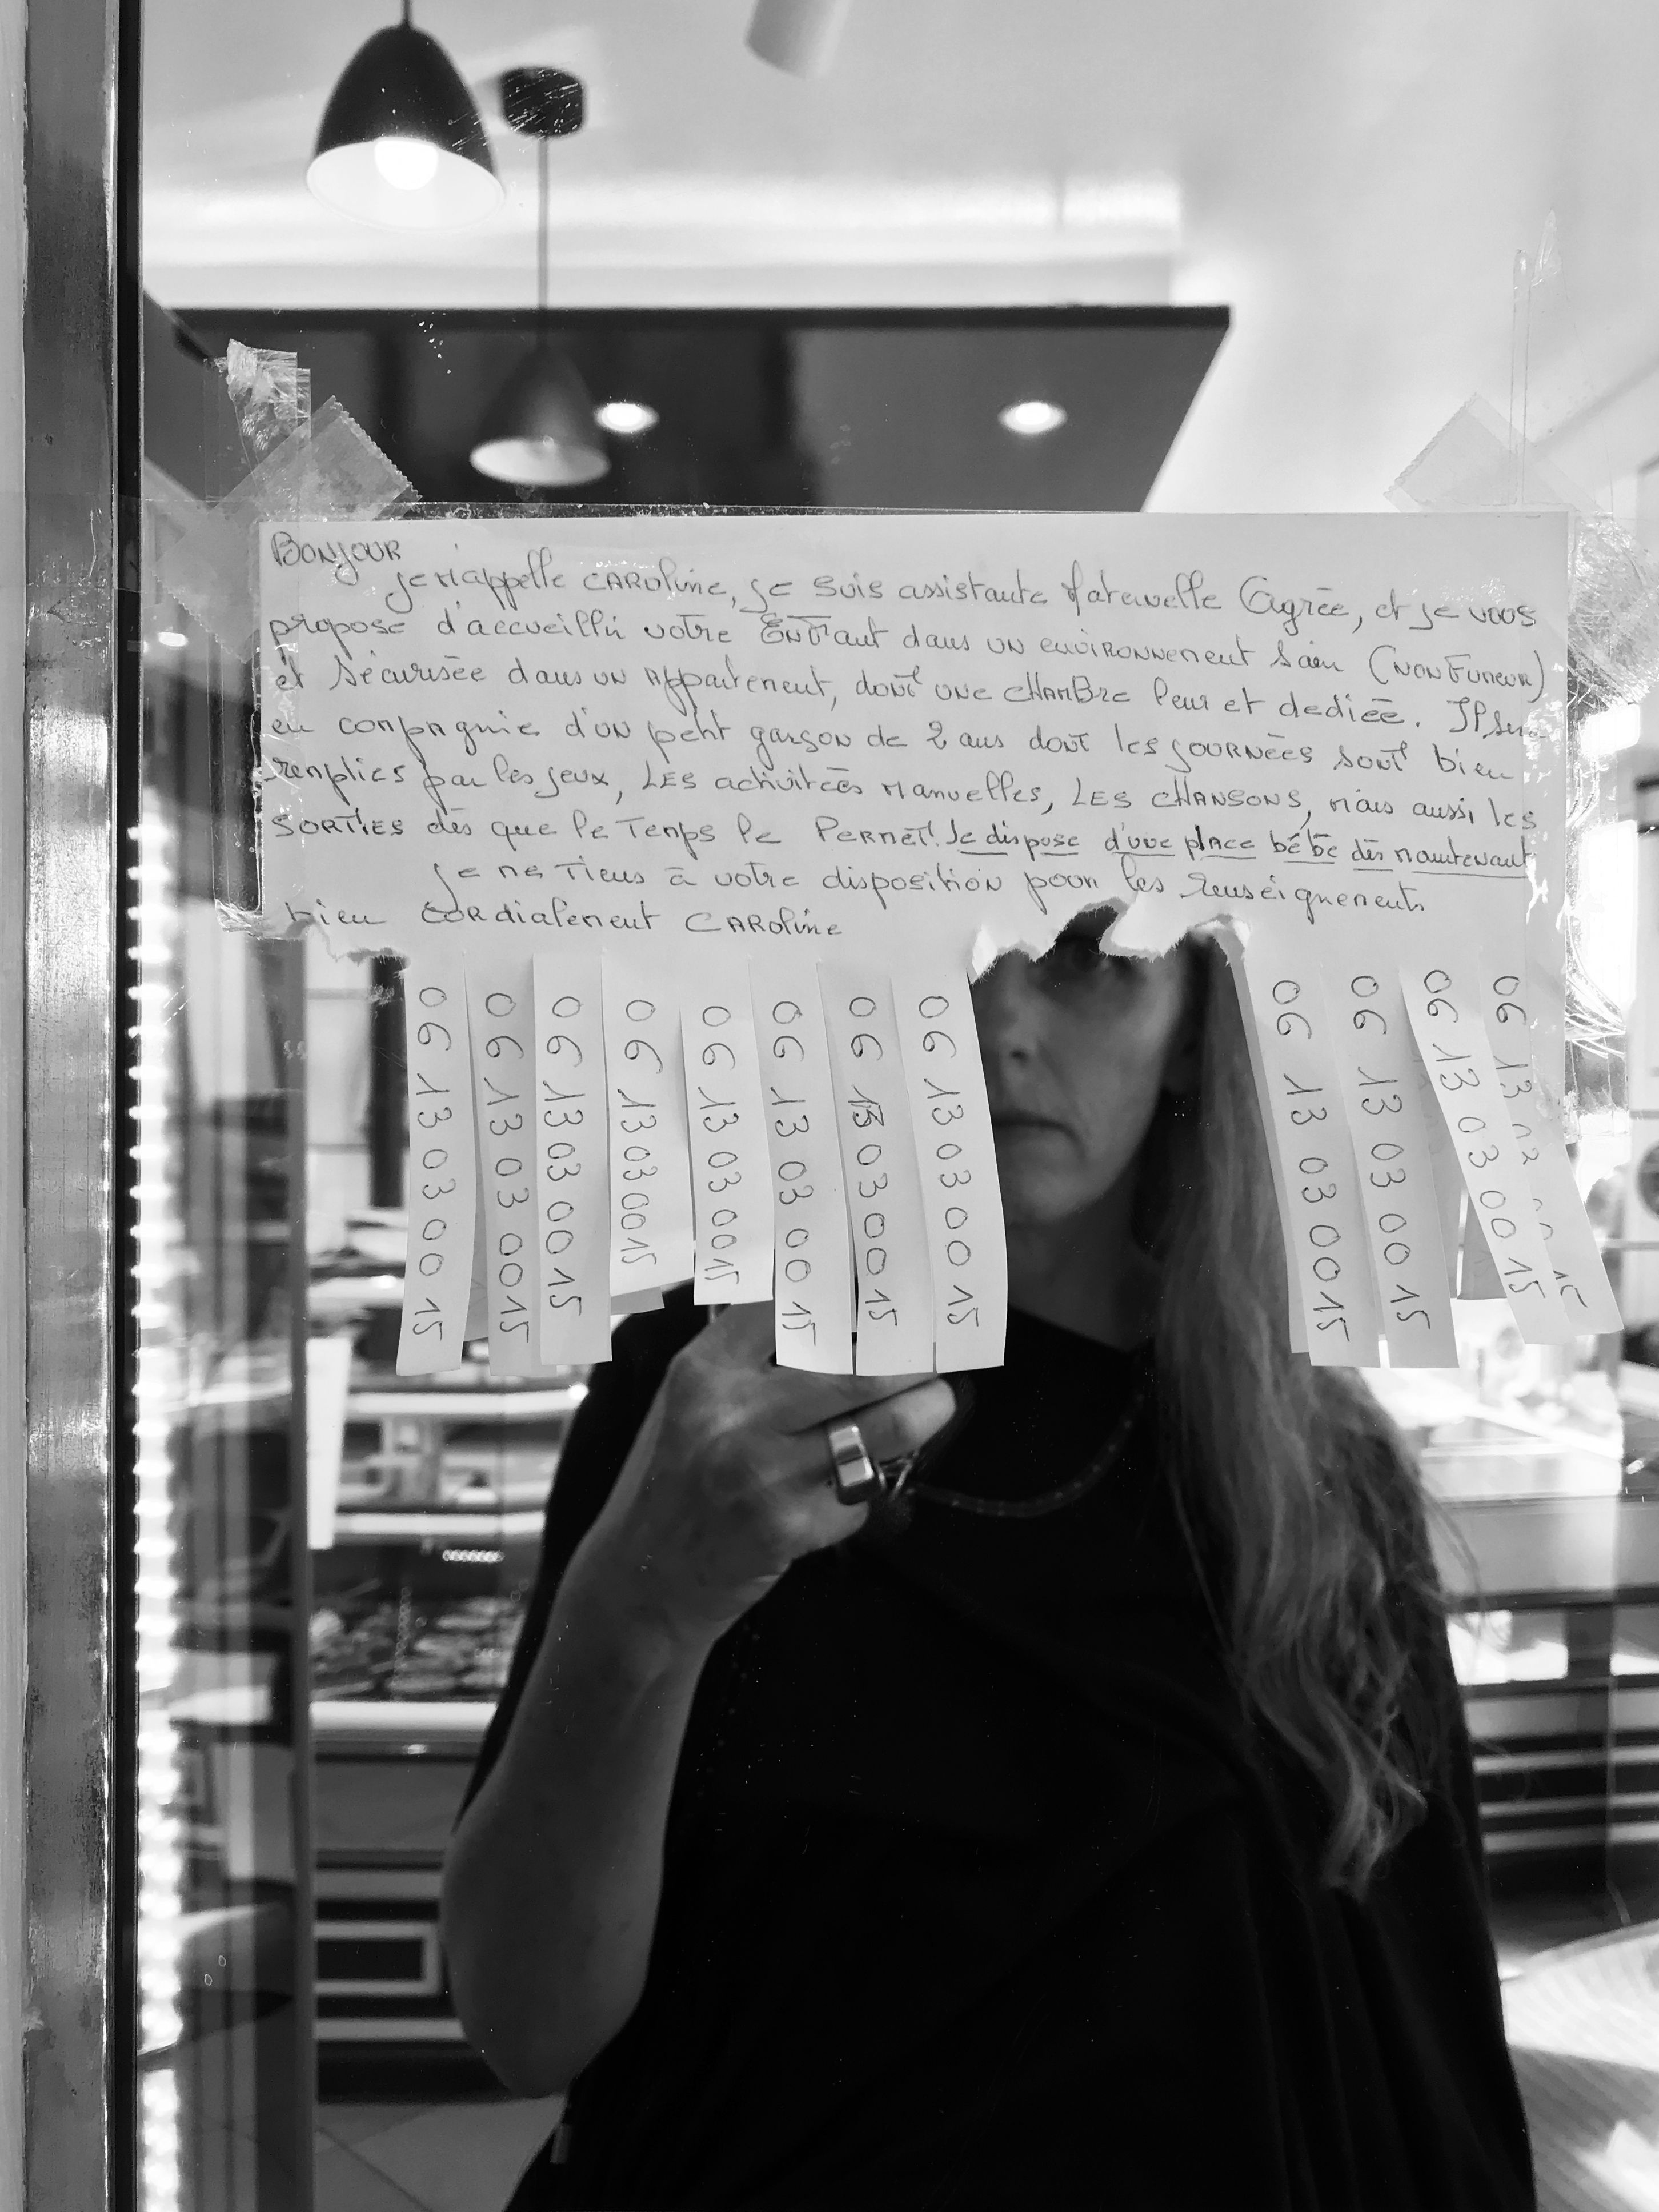 BONJOUR
Je m'appelle CAROline, je suis assistante Maternelle Agrée, et je vous
propose d'accueillir votre Enfant dans un environnement sain (NON FUMEUR)
et sécurisée dans un Appartement, dont une CHAMBre leur et dediée. Il sera
en compagnie d'un petit garson de 2 ans dont les JOURNÉES sont bien
remplies par les jeux, LES activitées Manuelles, LES CHANSONS, mais aussi les
SORTIES dès que le Temps le PERMET! Je dispose d'une place bébé dès maintenant
je me Tiens à votre disposition pour les renseignements
bien CORdialement CAROline
06 13 03 00 15
06 13 03 00 15
06 13 03 00 15
06 13 03 00 15
06 13 03 00 15
06 13 03 00 15
06 13 03 00 15
06 13 03 00 15
06 13 03 00 15
06 13 03 00 15
06 13 03 00 15
06 13 03 00 15